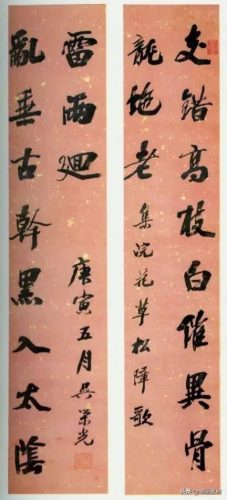 交錯高枝白摧異骨
龍虵老
集浣花草松障歌
亂垂古幹黑入太陰
雷雨廻
庚寅五月吳榮光